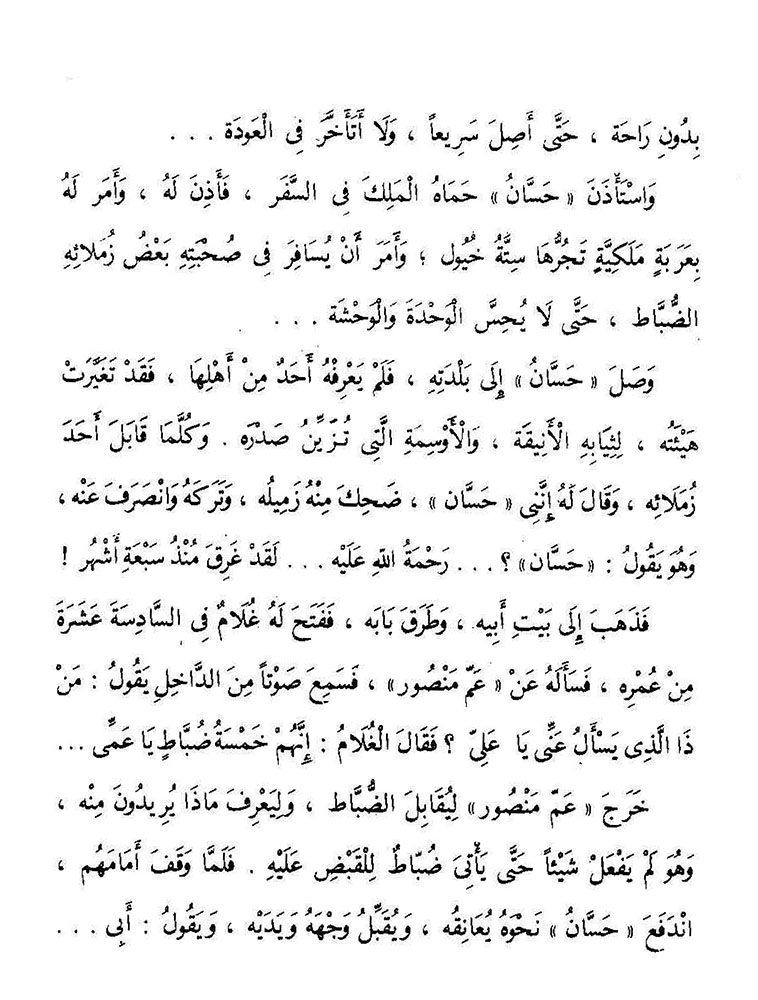 بِدُونِ رَاحَة ، حَتَّى أَصِلَ سَرِيعاً ، وَلَا أَتَأَخَّرَ فِى الْعَودَة . . .
وَاسْتَأْذَنَ « حَسَّانُ » حَمَاهُ الْمَلِكَ فِى السَّفَر ، فَأَذِنَ لَهُ ، وَأَمَر لَهُ
بِعَرَبَةٍ مَلَكِيَّةٍ تَجُرُّهَا سِتَّةُ خُيُول ؛ وَأَمَرَ أَنْ يُسَافِرَ فِى صُحْبَتِهِ بَعْضُ زُمَلائِهِ
الضُّبَّاط ، حَتَّى لَا يُحِسَّ الْوَحْدَةَ وَالْوَحْشَة . . .
وَصَلَ « حَسَّانُ » إِلَى بَلْدَتِهِ ، فَلَمْ يَعْرِفْهُ أَحَدٌ مِنْ أَهْلِهَا ، فَقَدْ تَغَيَّرَتْ
هَيْئَتُه ، لِثِيَابِهِ الْأَنِيقَة ، وَالْأَوْسِمَةِ الَّتِى تُزَيِّنُ صَدْرَه . وَكُلَّمَا قَابَلَ أَحَدَ
زُمَلَائِه ، وَقَالَ لَهُ إِنَّنِى « حَسَّان » ، ضَحِكَ مِنْهُ زَمِيلُه ، وَتَرَكَهُ وَانْصَرَفَ عَنْه ،
وَهُوَ يَقُولُ : « حَسَّان » ؟ . . . رَحْمَةُ اللهِ عَلَيْه . . . لَقَدْ غَرِقَ مُنْذُ سَبْعَةِ أَشْهُر !
فَذَهَبَ إِلَى بَيْتِ أَبِيه ، وَطَرَقَ بَابَه ، فَفَتَحَ لَهُ غُلَامٌ فِى السَّادِسَةَ عَشَرَةَ
مِنْ عُمْرِه ، فَسَأَلَهُ عَنْ « عَمّ مَنْصُور » ، فَسَمِعَ صَوْتاً مِنَ الدَّاخِلِ يَقُولُ : مَنْ
ذَا الَّذِى يَسْأَلُ عَنِّى يَا عَلِىّ ؟ فَقَالَ الْغُلَامُ : إِنَّهُمْ خَمْسَةُ ضُبَّاطٍ يَا عَمِّى ...
خَرَجَ « عَمّ مَنْصُور » لِيُقَابِلَ الضُّبَّاط ، وَلِيَعْرِفَ مَاذَا يُرِيدُونَ مِنْه ،
وَهُوَ لَمْ يَفْعَلْ شَيْئاً حَتَّى يَأْتِىَ ضُبّاطٌ لِلْقَبْضِ عَلَيْهِ . فَلَمَّا وَقَفَ أَمَامَهُم ،
انْدَفَعَ « حَسَّانُ » نَحْوَهُ يُعَانِقُه ، وَيُقَبِّلُ وَجْهَهُ وَيَدَيْه ، وَيَقُولُ : أَبِى . . .